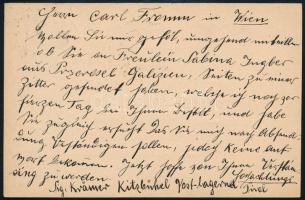 Herrn Carl Fromm in Wien
Wollen Sie mir gefl. umgehend mitteilen
ob Sie an Fräulein Sabina Ingber
aus Przemysl Galizien, Saiten zu einer
Zitter gesendet haben, welche ich vor
Tag bei Ihnen bestellt, und habe
Sie zugleich ersucht Das Sie mich nach Absend
ung Verständigen sollen, jedoch keine Ant
wort bekommen. Jetzt hoffe von Ihnen Verstän
digt zu werden Hochachtungs
Sig. Kramer Kitzbühel Post-Lagernd Tirol